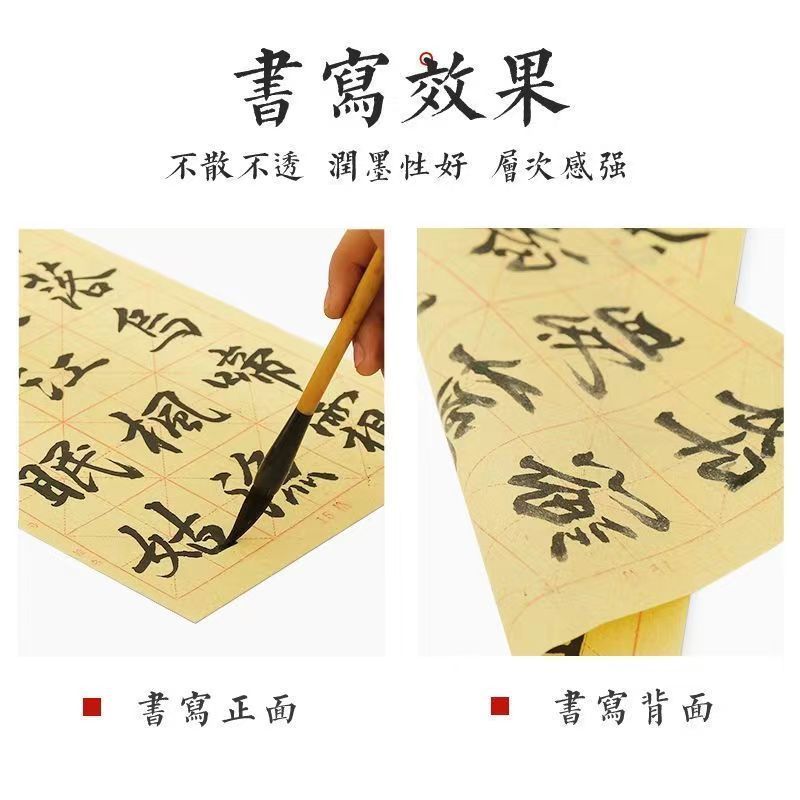 書寫效果
不散不透 潤墨性好 層次感强
落烏啼霜
江楓漁
眠姑
書寫正面
書寫背面